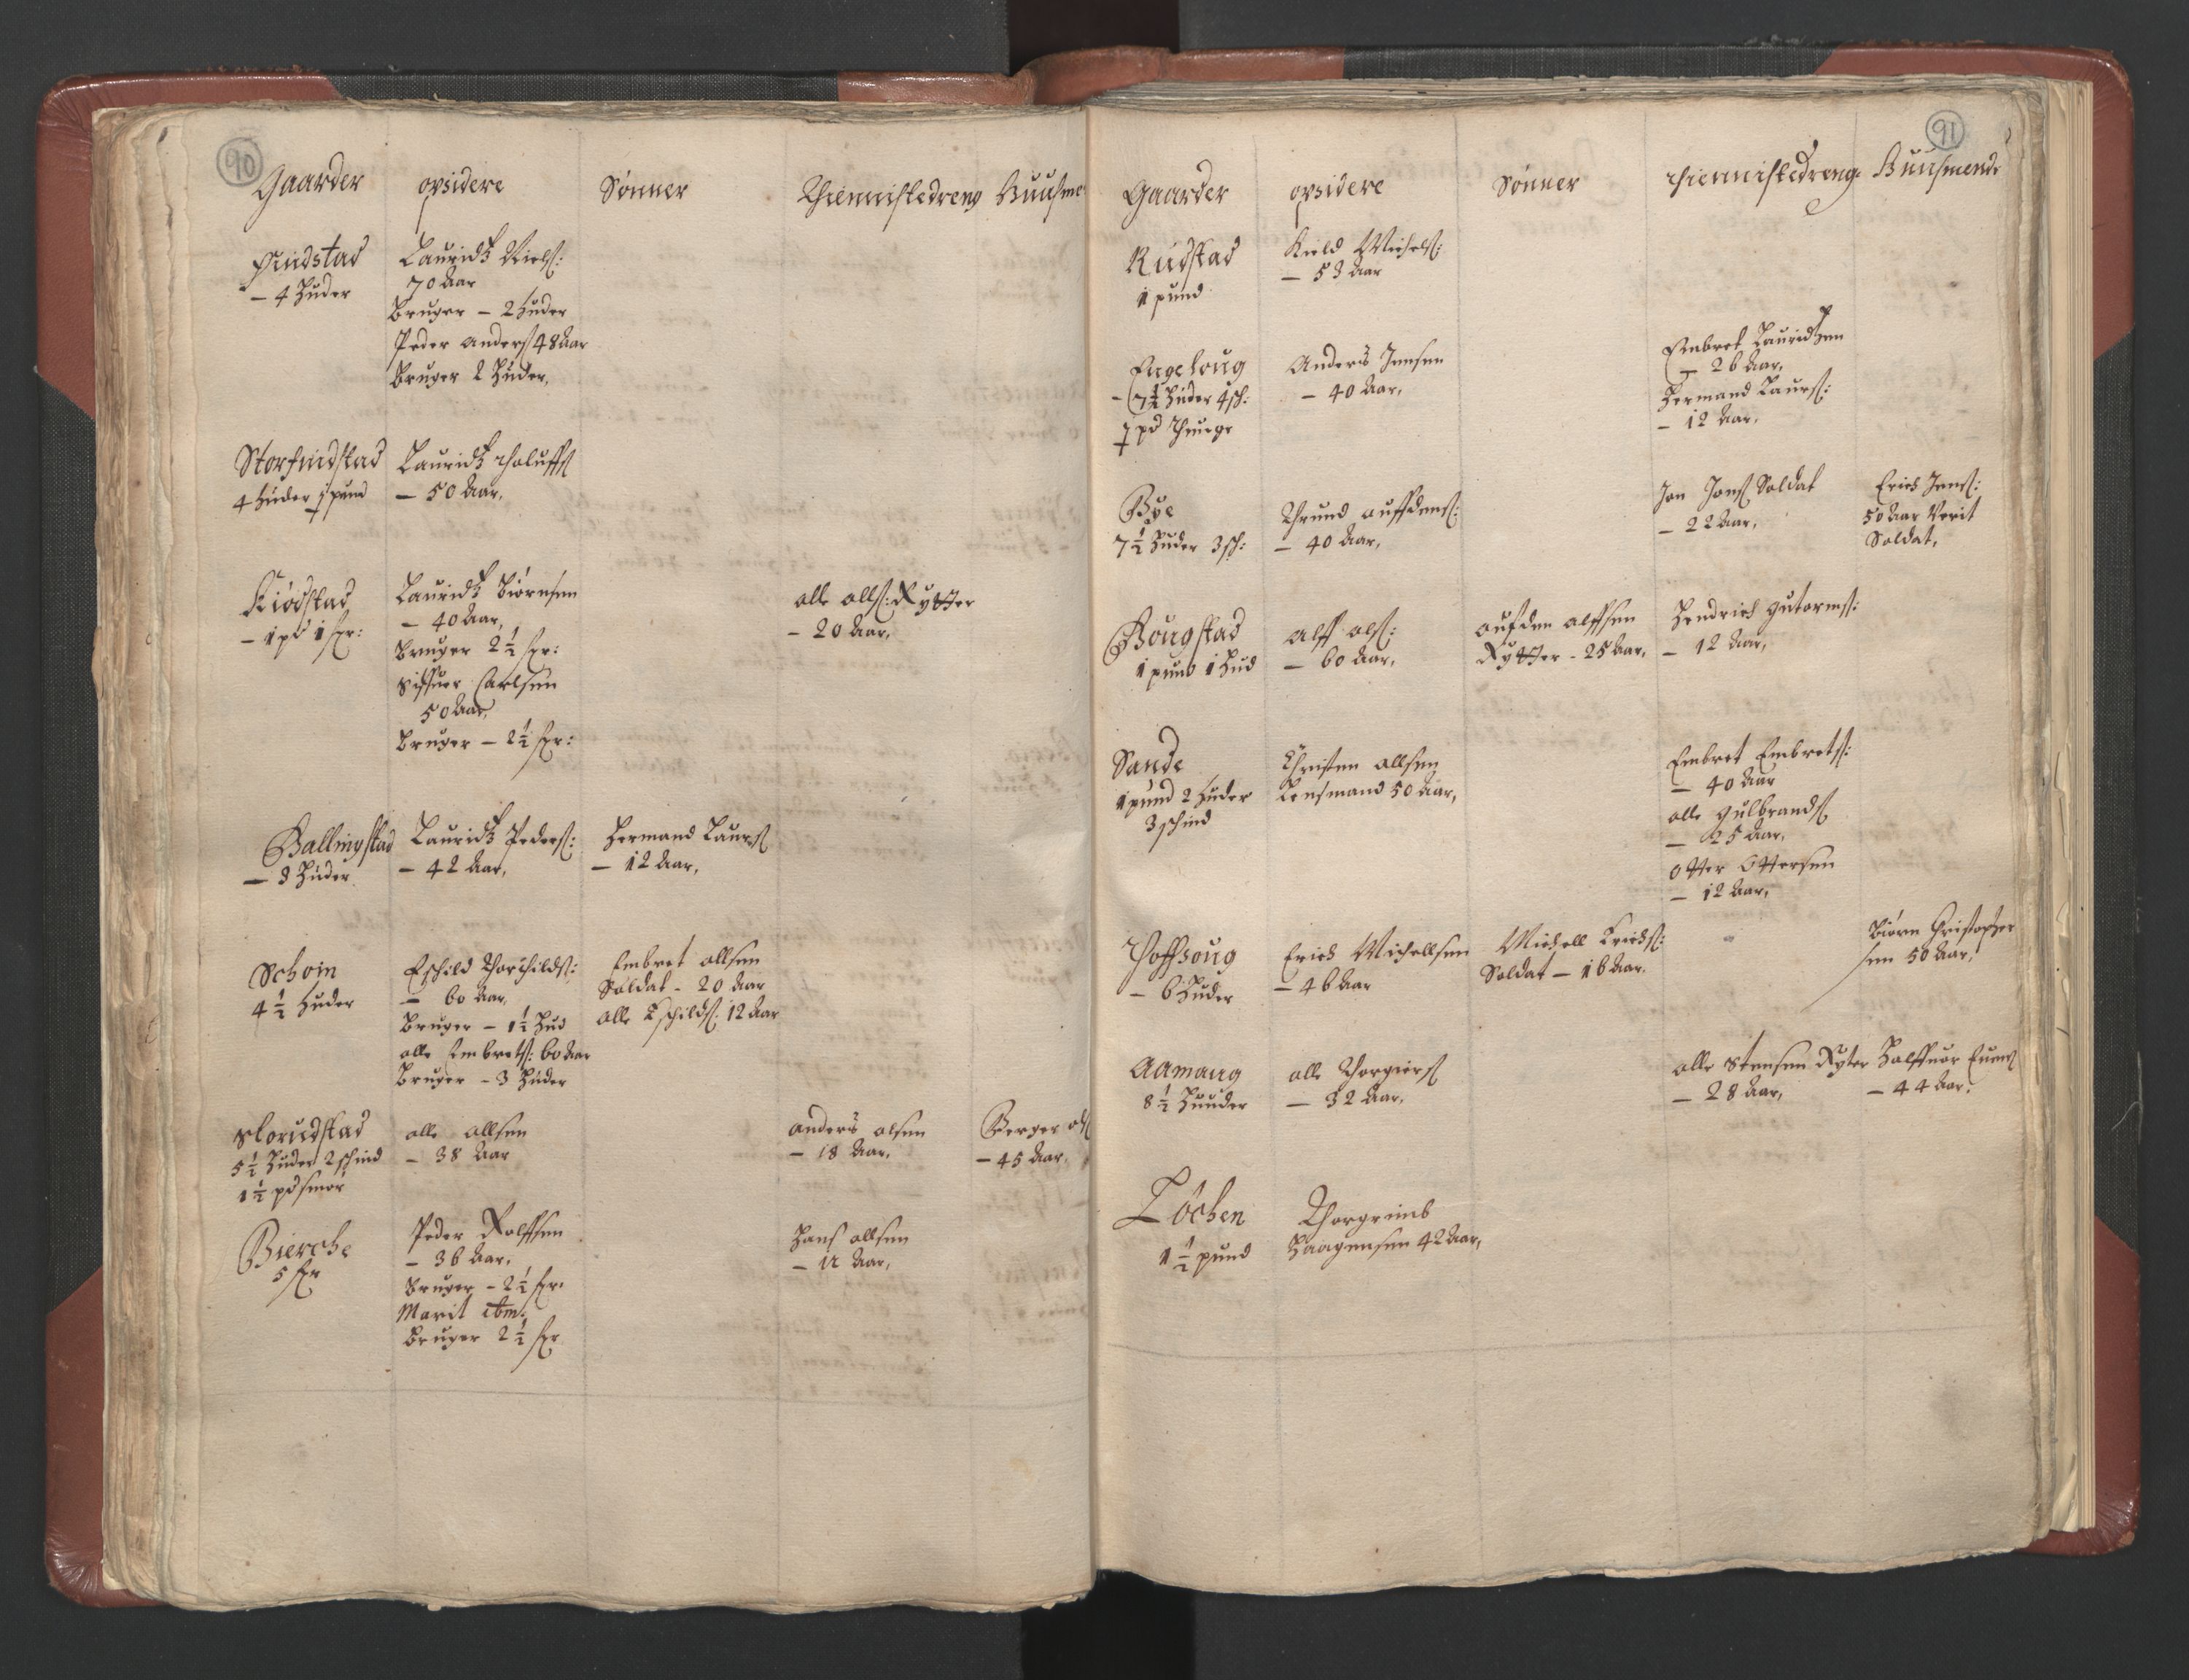 90
Gaarder opsidere Sønner Thiennistedreng Huusme
Lauridtz Nielß:
- 4 Huder
70 Aar
Bruger - 2 Huder
Peder Anderß 48 Aar
Bruger 2 Huder,
Lauridtz
4 Huder 1 pund
- 50 Aar,
Kiødstad
- 1 pd 1 ßr:
Lauridtz Biørnsen
- 40 Aar,
Bruger 2½ ßr:
Siffuer Carlsen
50 Aar,
Bruger - 2½ ßr:
olle ollß: Rytter
- 20 Aar,
Ballingstad
- 8 Huder
Lauridtz Pederß:
- 42 Aar,
Hermand Laurß
- 12 Aar,
Schoin
4½ Huder
Eschild Thorchildß:
- 60 Aar,
Bruger - 1½ Hud
olle Embretß: 60 Aar
Bruger - 3 Huder
Embret ollsen
Soldat - 20 Aar
olle Eschildß: 12 Aar
Slorudstad
5½ Huder 2 schind
1½ pd smør
olle ollsen
- 38 Aar
anders olsen
- 18 Aar,
Berger olß
- 45 Aar,
Bierche
5 ßr
Peder Rolffsen
- 36 Aar,
Bruger - 2½ ßr.
Marit
Bruger 2½ ßr
Hans ollsen
- 12 Aar,
91
Gaarder opsidere Sønner thiennistedreng Huusmend
Rudstad
1 pund
Kield Michelß:
- 53 Aar
Engeloug
- 7½ Huder 4 sch:
1 pd
Anders Jensen
- 40 Aar,
Embret Lauridtzen
- 26 Aar,
Hermand Laurß:
- 12 Aar,
Bye
7½ Huder 3 sch:
Thrund auffdenß:
- 40 Aar,
Jon Jonß Soldat
- 22 Aar,
Erich Jenß:
50 Aar Verit
Soldat,
Bougstad
1 pund 1 Hud
alff olß:
- 60 Aar,
aufden alffsen
Rytter - 25 Aar,
Hendrich gutormß:
- 12 Aar,
Sande
1 pund 2 Huder
3 schind
Christen ollsen
Lensmand 50 Aar,
Embret Embretß:
- 40 Aar
olle gulbrandß
- 25 Aar,
Otter Ottersen
- 12 Aar,
Hoffsoug
- 6 Huder
Erich Michellsen
- 46 Aar
Michell Erichß:
Soldat - 16 Aar.
Biørn Christopher
sen 50 Aar,
Aamang
8½ Huuder
olle Thorgierß
- 32 Aar,
olle Stensen Ryter
- 28 Aar,
Halffuor Euenß
- 44 Aar.
Løchen
1½ pund
Thorgrimb
Haagensen 42 Aar,